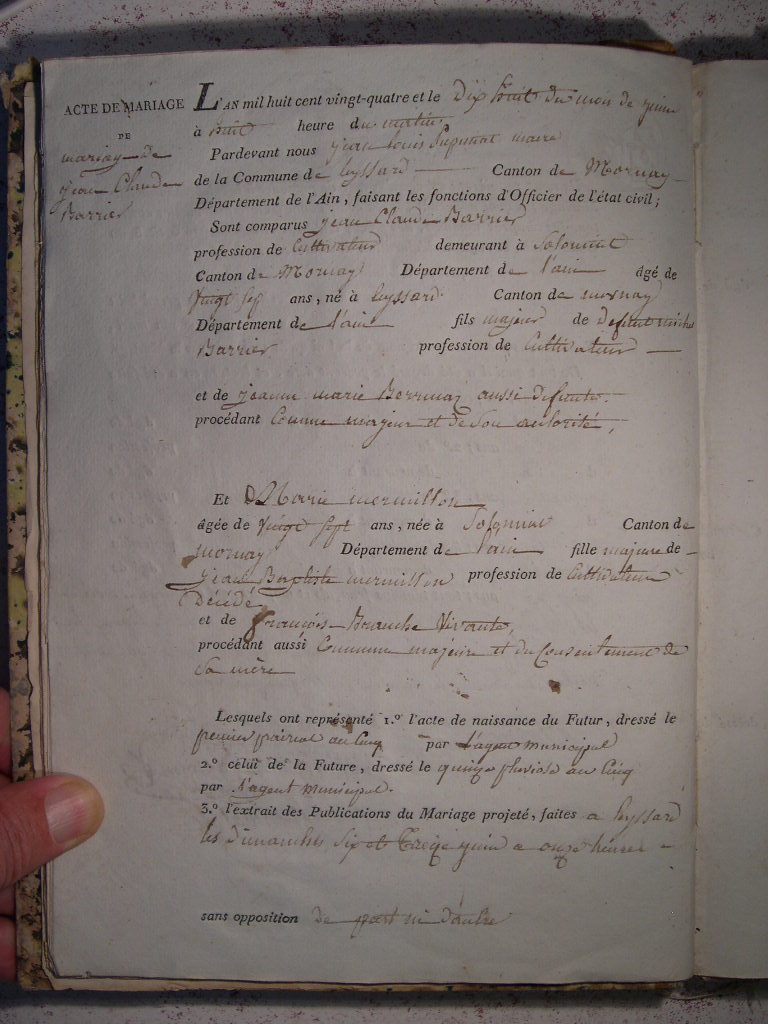 ACTE DE MARIAGE
DE
mariage de
jean Claude
Barrier
L'AN mil huit cent vingt-quatre et le Dix huit du mois de juin
à huit heure du matin
Pardevant nous jean louis maire
de la Commune de leyssard Canton de Mornay
Département de l'Ain, faisant les fonctions d'Officier de l'état civil;
Sont comparus jean Claude Barrier
profession de Cultivateur demeurant à Solomiat
Canton de Mornay Département de l'ain âgé de
vingt sep ans, né à leyssard Canton de mornay
Département de l'ain fils majeur de defunt
Barrier profession de Cultivateur
et de jeanne marie aussi defunte.
procédant Comme majeur et de Son autorité,
Et Marie mermillon
âgée de vingt sept ans, née à Solomiat Canton de
mornay Département de l'ain fille majeure de
jean Baptiste mermillon profession de Cultivateur
Décédé
et de françois Branche Vivante,
procédant aussi Comme majeure et du Consentement de
Sa mère
Lesquels ont représenté 1.º l'acte de naissance du Futur, dressé le
premier prairial an Cinq par l'agent municipal
2.º celui de la Future, dressé le quinze pluviose an Cinq
par l'agent municipal.
3.º l'extrait des Publications du Mariage projeté, faites a leyssard
les dimanches Six et Treize juin a onze heures
sans opposition de part ni d'autre